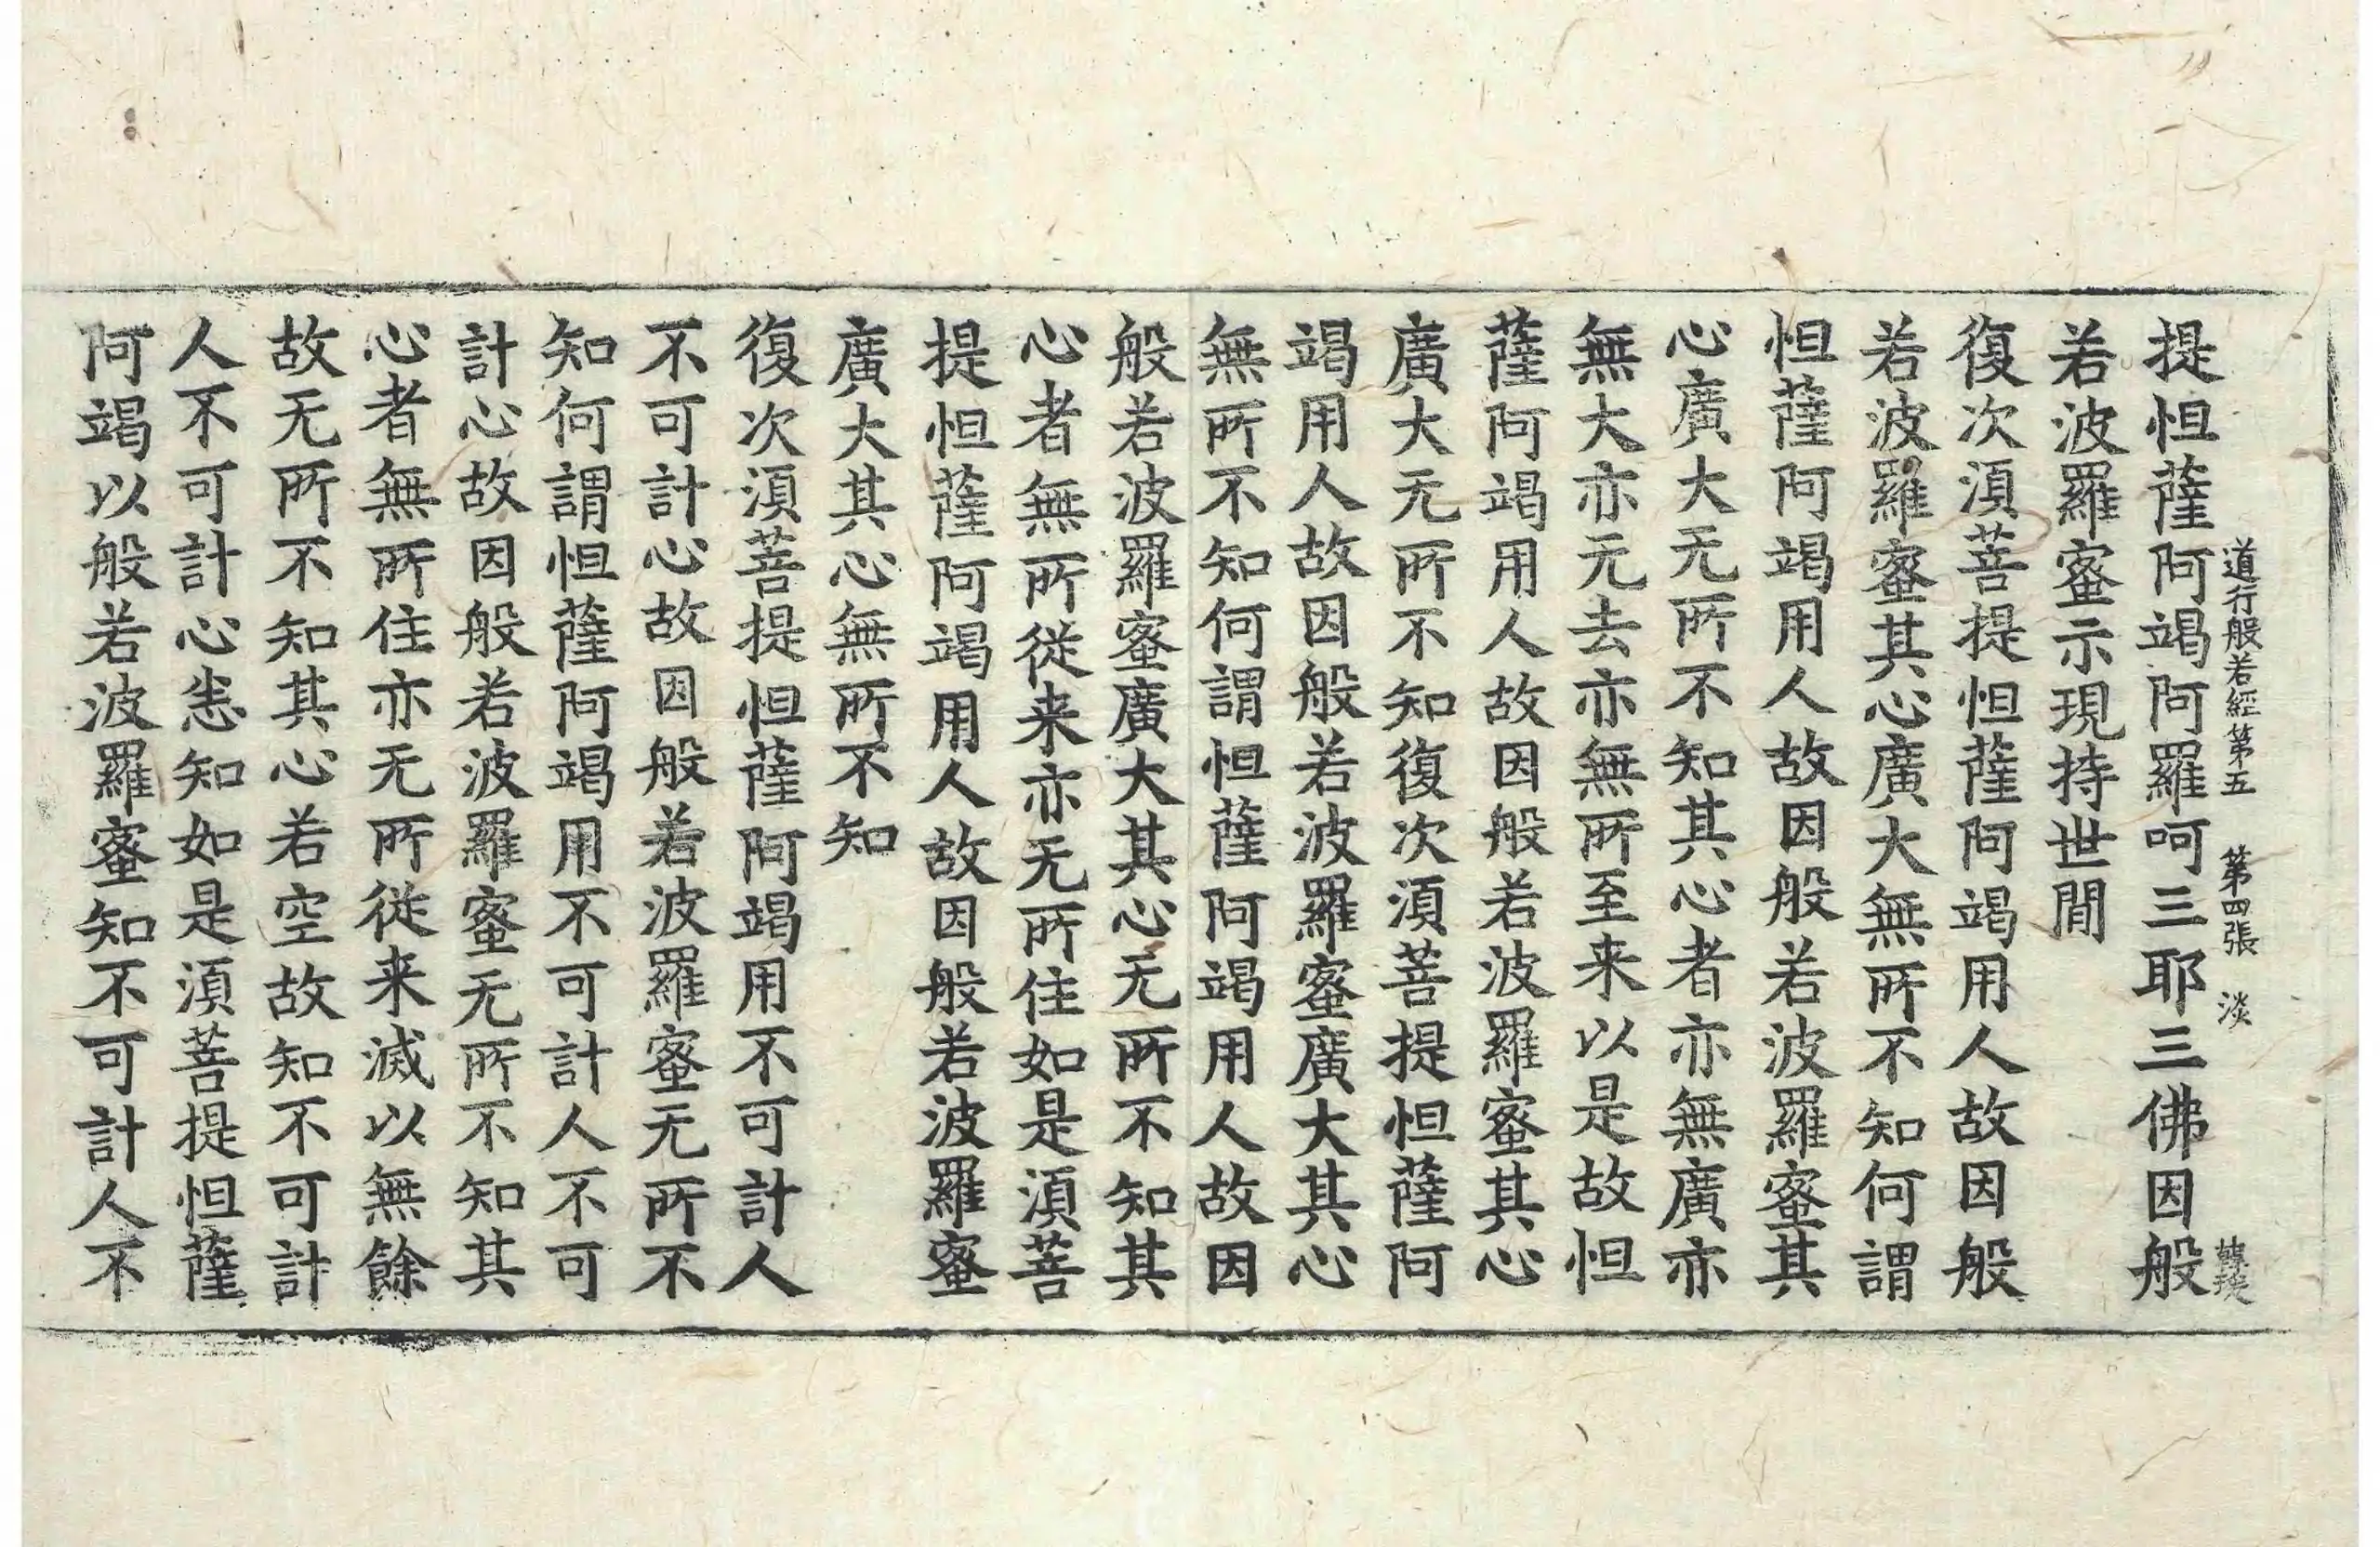 道行般若經第五 第四張 淡
提怛薩阿竭阿羅呵三耶三佛因般
若波羅蜜示現持世間
復次湏菩提怛薩阿竭用人故因般
若波羅蜜其心廣大無所不知何謂
怛薩阿竭用人故因般若波羅蜜其
心廣大无所不知其心者亦無廣亦
無大亦元去亦無所至来以是故怛
薩阿竭用人故因般若波羅蜜其心
廣大无所不知復次湏菩提怛薩阿
竭用人故因般若波羅蜜廣大其心
無所不知何謂怛薩阿竭用人故因
般若波羅蜜廣大其心无所不知其
心者無所從来亦无所住如是湏菩
提怛薩阿竭用人故因般若波羅蜜
廣大其心無所不知
復次湏菩提怛薩阿竭用不可計人
不可計心故因般若波羅蜜无所不
知何謂怛薩阿竭用不可計人不可
計心故因般若波羅蜜无所不知其
心者無所住亦无所從来滅以無餘
故无所不知其心若空故知不可計
人不可計心悉知如是湏菩提怛薩
阿竭以般若波羅蜜知不可計人不